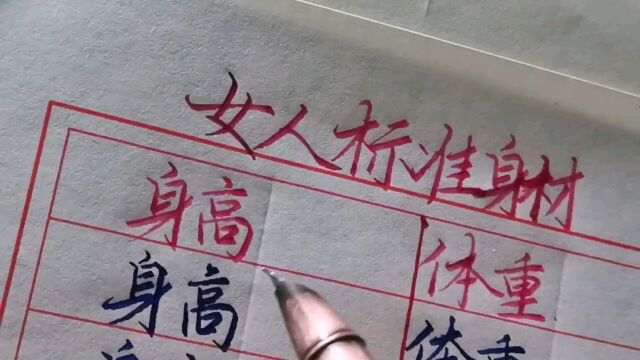 女人标准身材
身高 体重
身高 体重